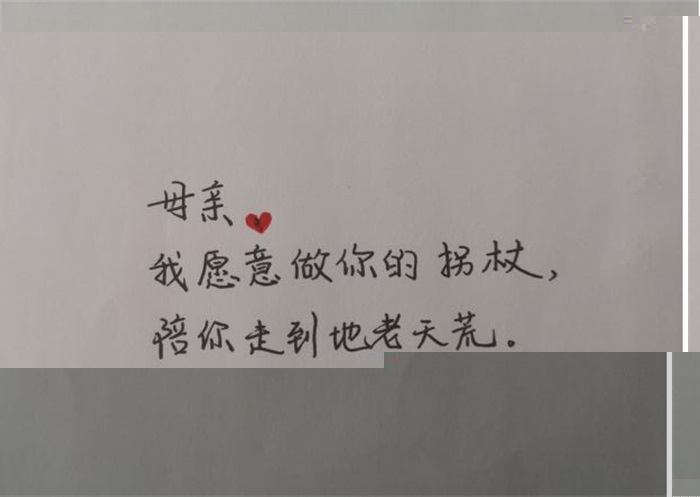 母亲
我愿意做你的拐杖，
陪你走到地老天荒。